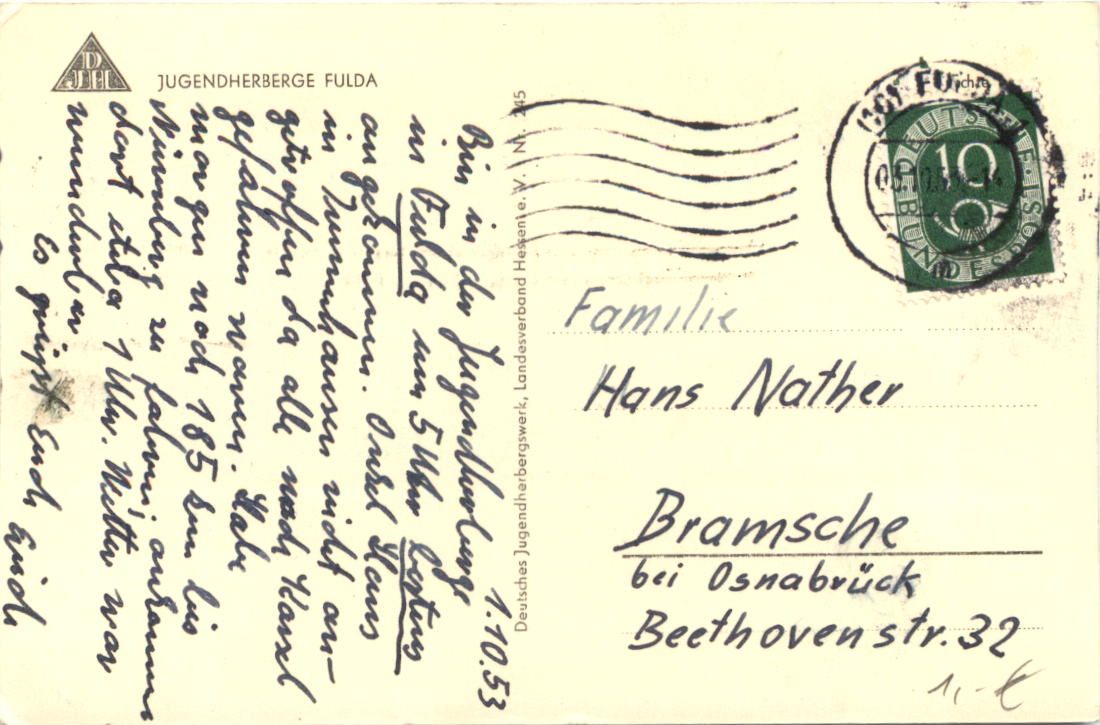 DJH
JUGENDHERBERGE FULDA
1.10.53
Bin in der Jugendherberge
in Fulda um 5 Uhr bestens
angekommen. Onkel Hans
in Immenhausen nicht an-
getroffen da alle nach Kassel
gefahren waren. Habe
morgen noch 185 km bis
Nürnberg zu fahren; ankomme
dort etwa 1 Uhr. Wetter war
wunderbar.
Es grüßt Euch Erich
Deutsches Jugendherbergswerk, Landesverband Hessen e. V. Nr. 245
FULDA
DEUTSCHE
10
BUNDESPOST
Familie
Hans Nather
Bramsche
bei Osnabrück
Beethovenstr. 32
1,- €